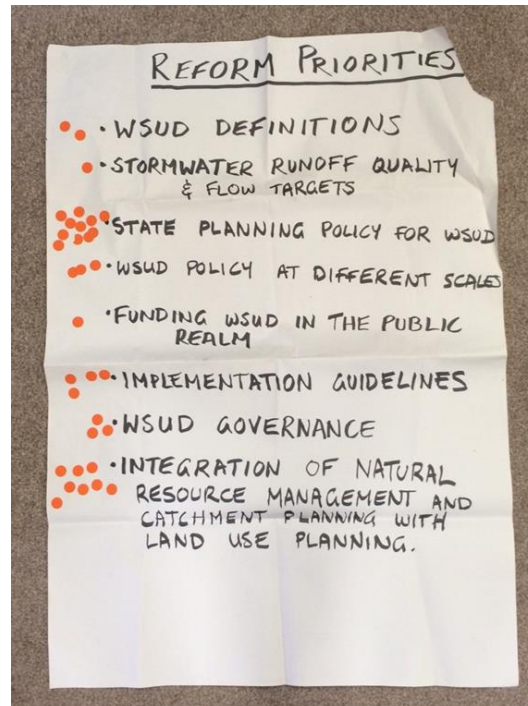 REFORM PRIORITIES
• WSUD DEFINITIONS
• STORMWATER RUNOFF QUALITY
& FLOW TARGETS
• STATE PLANNING POLICY FOR WSUD
• WSUD POLICY AT DIFFERENT SCALES
• FUNDING WSUD IN THE PUBLIC
REALM
• IMPLEMENTATION GUIDELINES
• WSUD GOVERNANCE
• INTEGRATION OF NATURAL
RESOURCE MANAGEMENT AND
CATCHMENT PLANNING WITH
LAND USE PLANNING.